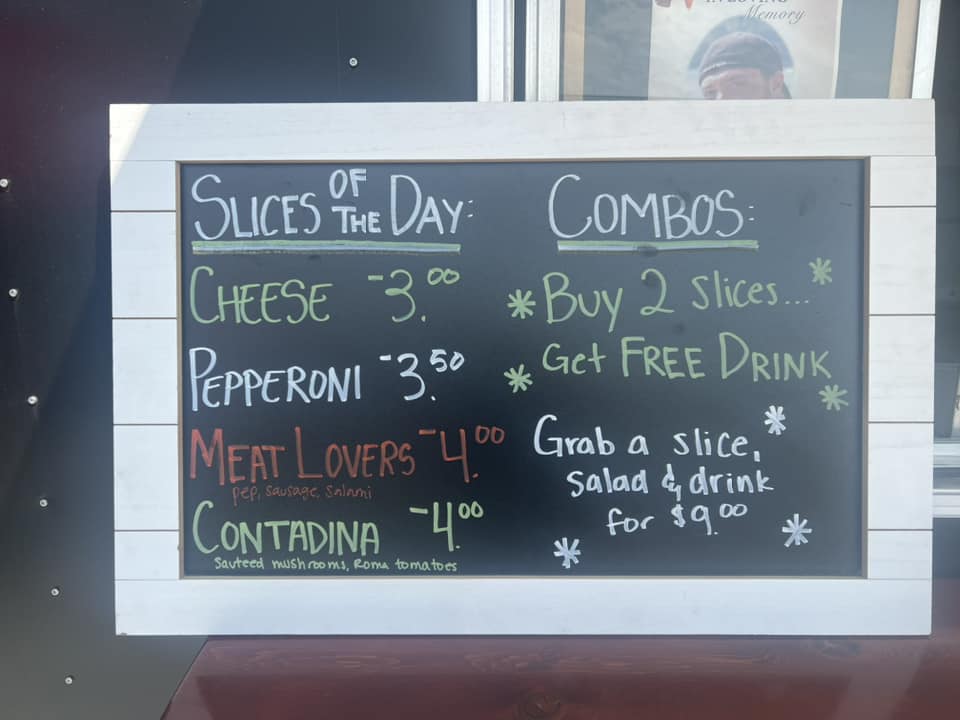 Memory
SLICES OF THE DAY:
CHEESE - 3.00
PEPPERONI - 3.50
MEAT LOVERS - 4.00
pep, sausage, salami
CONTADINA - 4.00
Sauteed mushrooms, Roma tomatoes
COMBOS:
* Buy 2 slices... *
* Get FREE DRINK *
Grab a slice, *
salad & drink
for $9.00
* *